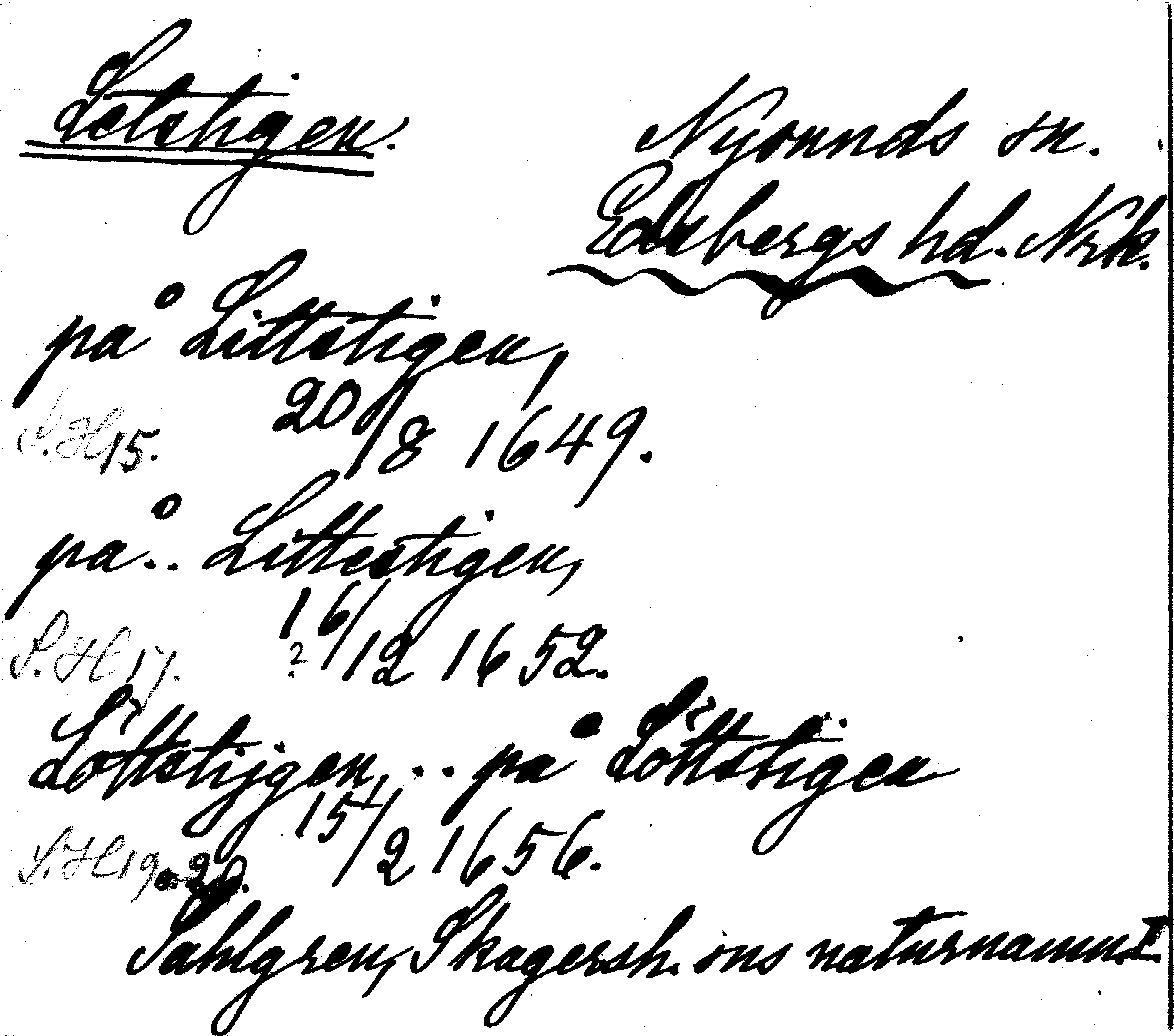 Letstigen.
Nysunds sn.
Edsbergs hd. Nrk.
på Littstigen,
S.H 15. 20/8 1649.
på.. Littestigen,
S.H 17. 16/12 1652.
?
Löttstijgen, .. på Löttstigen
S.H 19, 20. 15/2 1656.
Sahlgren, Skagersh. sns naturnamn I.